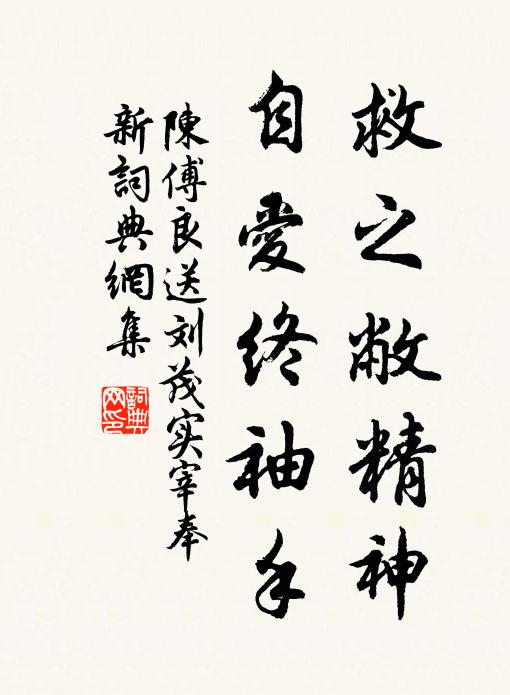 救之敝精神
自愛終袖手
陳傅良送刘茂实宰奉
新詞典網集
詞典网印